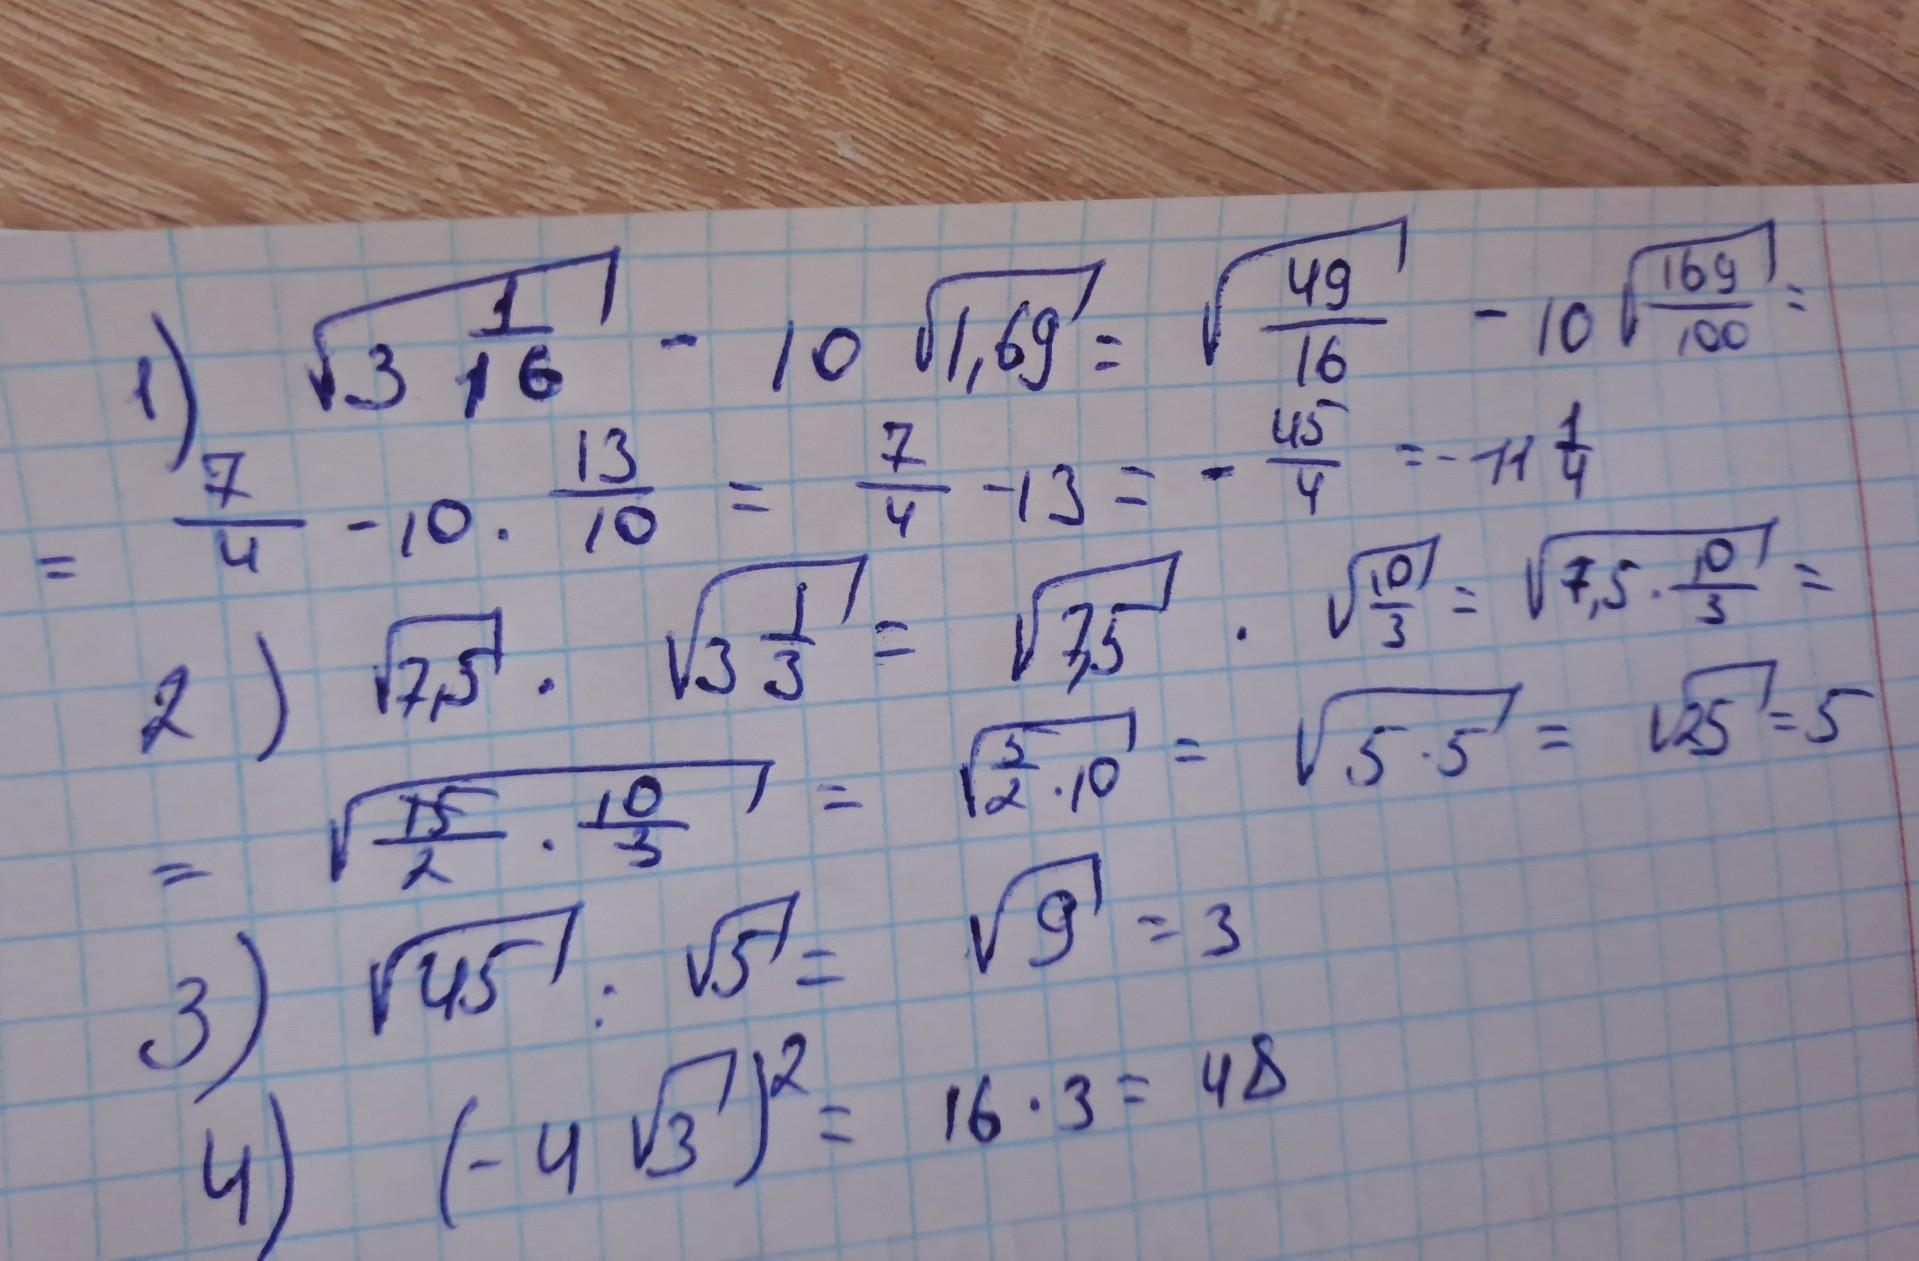 1) √(3 1/16) - 10 √(1,69) = √(49/16) - 10 √(169/100) =
= 7/4 - 10 · 13/10 = 7/4 - 13 = - 45/4 = - 11 1/4
2) √(7,5) · √(3 1/3) = √(7,5) · √(10/3) = √(7,5 · 10/3) =
= √(15/2 · 10/3) = √(5/2 · 10) = √(5 · 5) = √25 = 5
3) √45 : √5 = √9 = 3
4) (-4 √3)² = 16 · 3 = 48